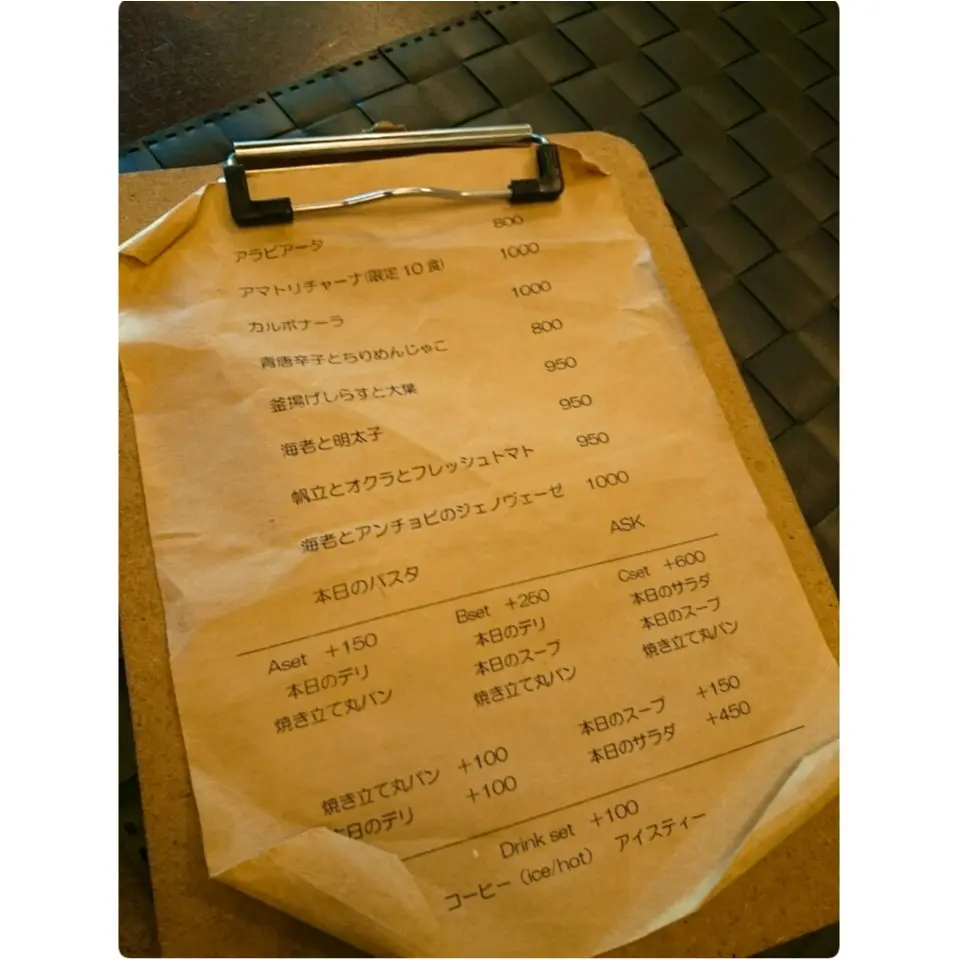 アラビアータ 800
アマトリチャーナ(限定10食) 1000
カルボナーラ 1000
青唐辛子とちりめんじゃこ 800
釜揚げしらすと大葉 950
海老と明太子 950
帆立とオクラとフレッシュトマト 950
海老とアンチョビのジェノヴェーゼ 1000
本日のパスタ ASK
Aset +150
本日のデリ
焼き立て丸パン
Bset +250
本日のデリ
本日のスープ
焼き立て丸パン
Cset +600
本日のサラダ
本日のスープ
焼き立て丸パン
焼き立て丸パン +100
本日のデリ +100
本日のスープ +150
本日のサラダ +450
Drink set +100
コーヒー(ice/hot) アイスティー